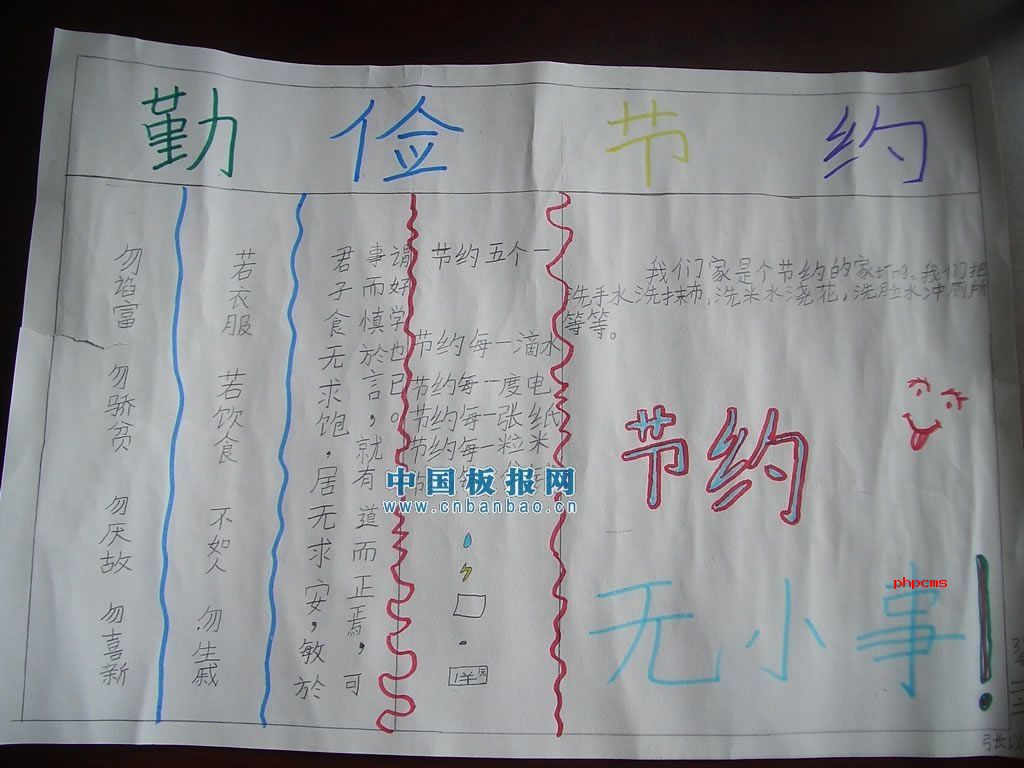 勤俭节约
勿谄富 勿骄贫 勿厌故 勿喜新
若衣服 若饮食 不如人 勿生戚
君子食无求饱，居无求安，敏於
事而慎於言，就有道而正焉，可
谓好学也已。
节约五个一
节约每一滴水
节约每一度电
节约每一张纸
节约每一粒米
1羊
我们家是个节约的家
我们把
洗手水洗抹布，洗米水浇花，洗脸水冲厕所
等等。
节约
无小事！
中国板报网
www.cnbanbao.cn
phpcms